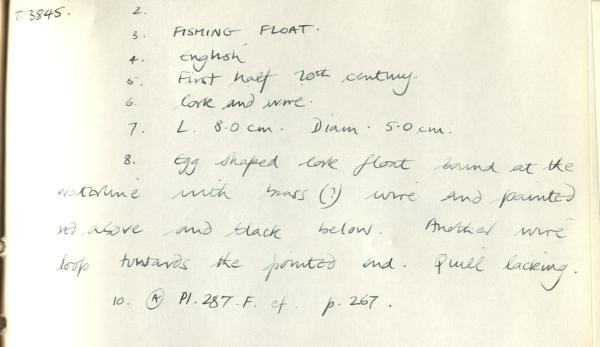 T.3845. 2.
3. FISHING FLOAT.
4. English
5. First half 20th century.
6. Cork and wire.
7. L. 8.0 cm. Diam. 5.0 cm.
8. Egg shaped cork float bound at the
waterline with brass (?) wire and painted
red above and black below. Another wire
loop towards the pointed end. Quill lacking.
10. (A) Pl. 287.F. cf. p. 267.